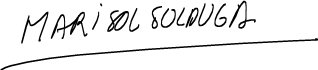 MARiSOL SOLDUGA